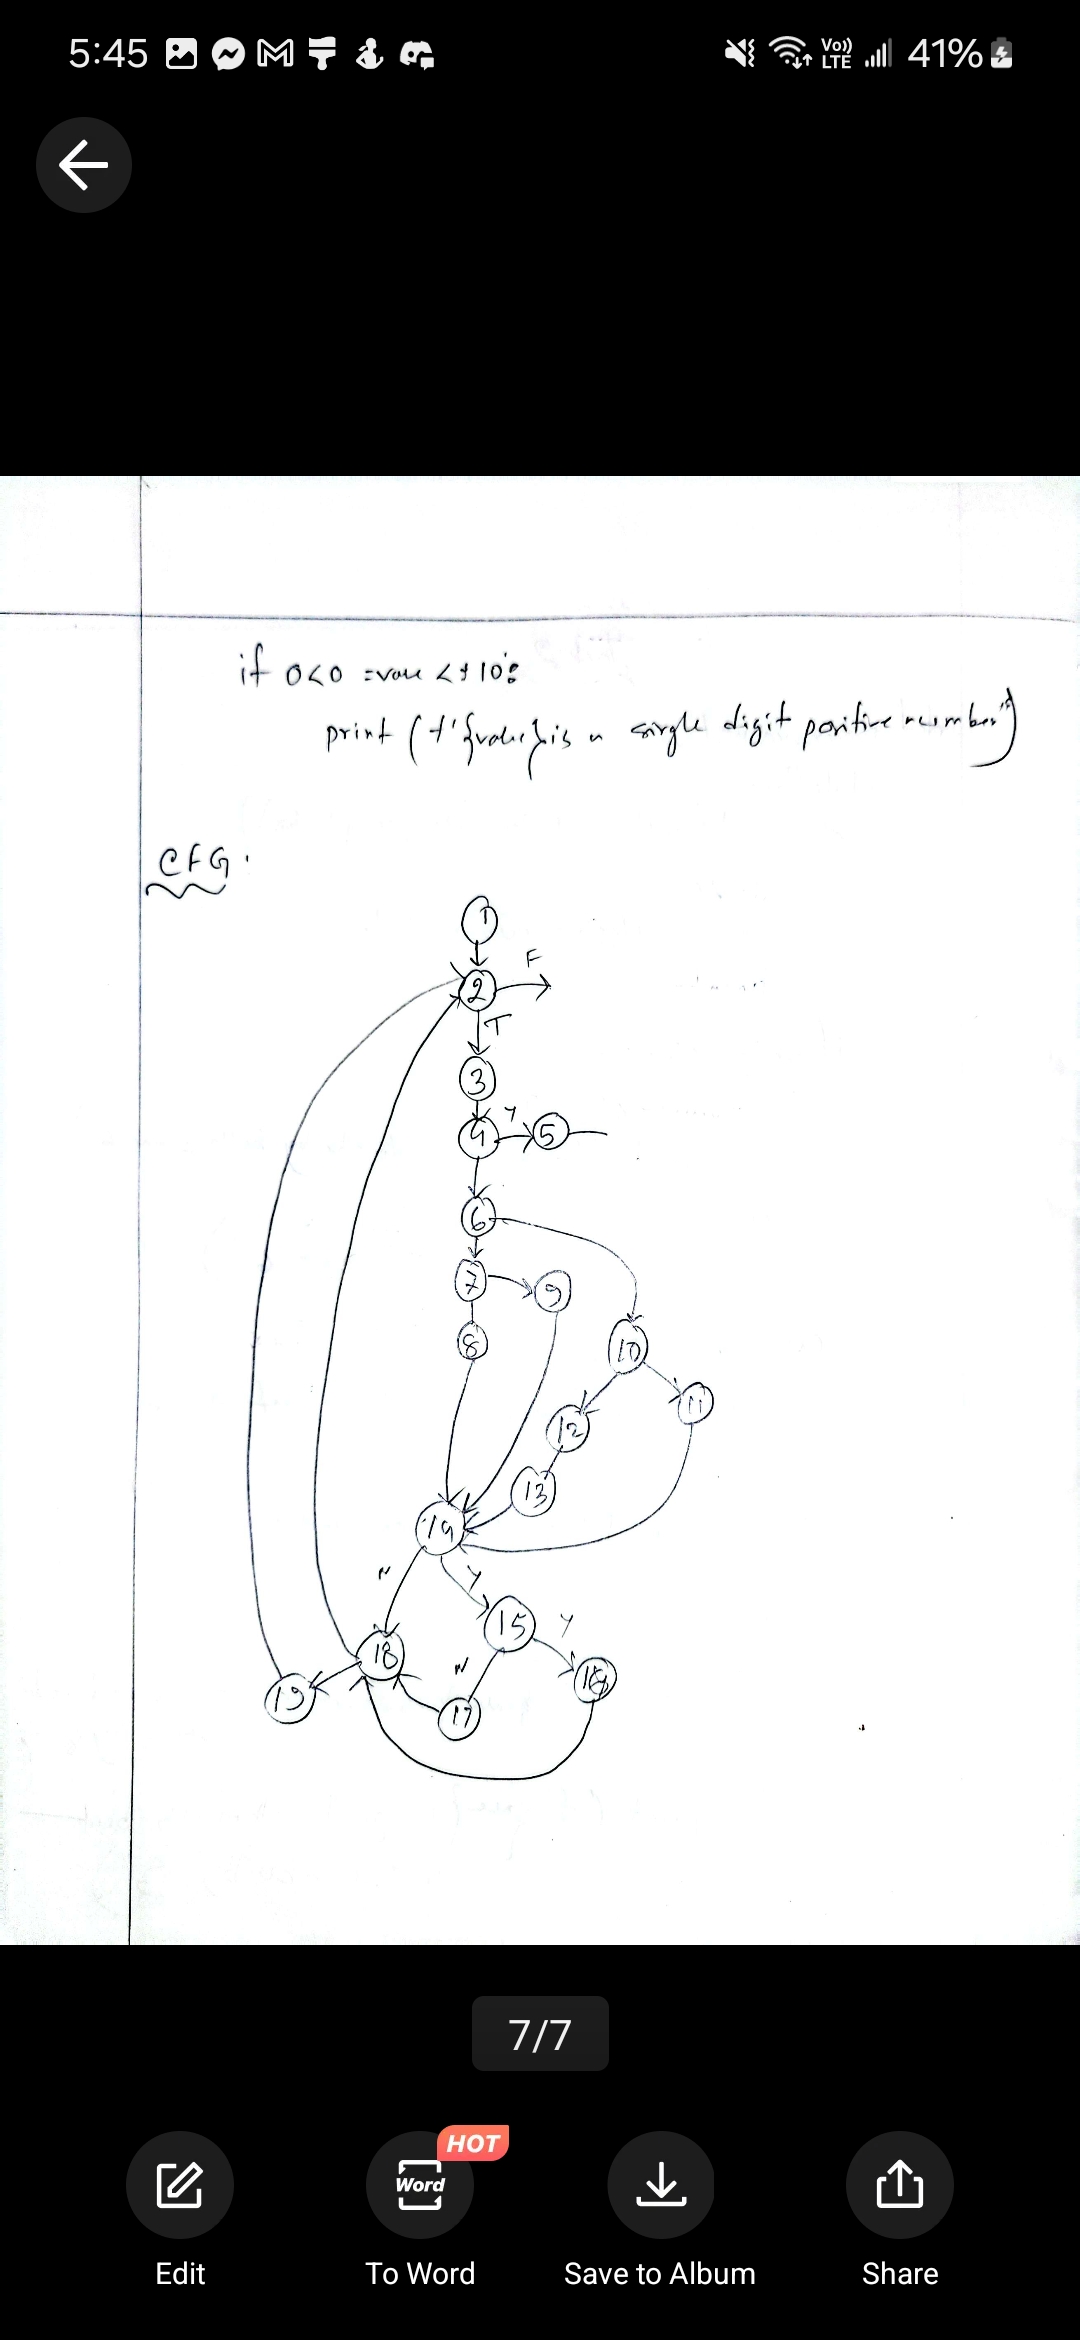 5:45
Vo)) LTE 41%
if 0<0 =value <+10:
print (f'{value} is a single digit positive number")
CFG.
1
F
2
T
3
Y
4 5
6
7 9
8
10
11
12
13
14
N Y
15 Y
18
N
16
19
17
7/7
HOT
Word
Edit To Word Save to Album Share